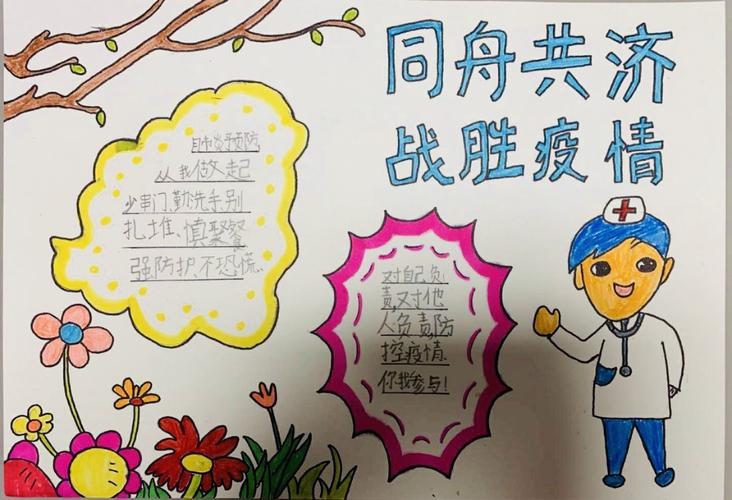 同舟共济
战胜疫情
肺炎预防
从我做起
少串门、勤洗手、别
扎堆、慎聚餐
强防护、不恐慌.
对自己负
责,对他
人负责,防
控疫情.
你我参与!